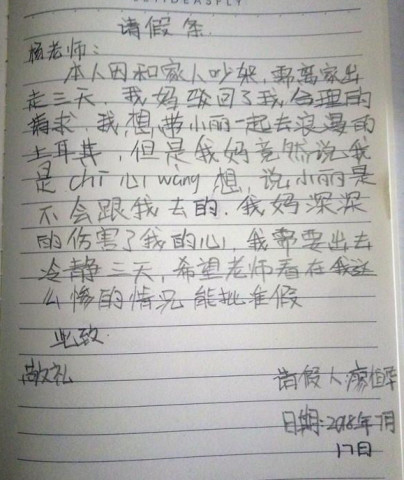 请假条
杨老师：
本人因和家人吵架，需离家出
走三天，我妈驳回了我合理的
请求，我想带小丽一起去浪漫的
土耳其，但是我妈竟然说我
是chī心wàng想，说小丽是
不会跟我去的．我妈深深
的伤害了我的心，我需要出去
冷静三天，希望老师看在我这
么惨的情况能批准假
此致
敬礼
请假人：廖
日期：2018年7月
17日